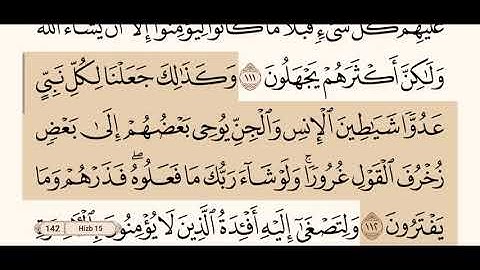 عَلَيۡهِمۡ كُلَّ شَيۡءٖ قُبُلٗا مَّا كَانُواْ لِيُؤۡمِنُوٓاْ إِلَّآ أَن يَشَآءَ ٱللَّهُ
وَلَٰكِنَّ أَكۡثَرَهُمۡ يَجۡهَلُونَ ١١١ وَكَذَٰلِكَ جَعَلۡنَا لِكُلِّ نَبِيٍّ
عَدُوّٗا شَيَٰطِينَ ٱلۡإِنسِ وَٱلۡجِنِّ يُوحِي بَعۡضُهُمۡ إِلَىٰ بَعۡضٖ
زُخۡرُفَ ٱلۡقَوۡلِ غُرُورٗاۚ وَلَوۡ شَآءَ رَبُّكَ مَا فَعَلُوهُۖ فَذَرۡهُمۡ وَمَا
يَفۡتَرُونَ ١١٢ وَلِتَصۡغَىٰٓ إِلَيۡهِ أَفۡـِٔدَةُ ٱلَّذِينَ لَا يُؤۡمِنُونَ بِٱلۡأٓخِرَةِ
142 Hizb 15